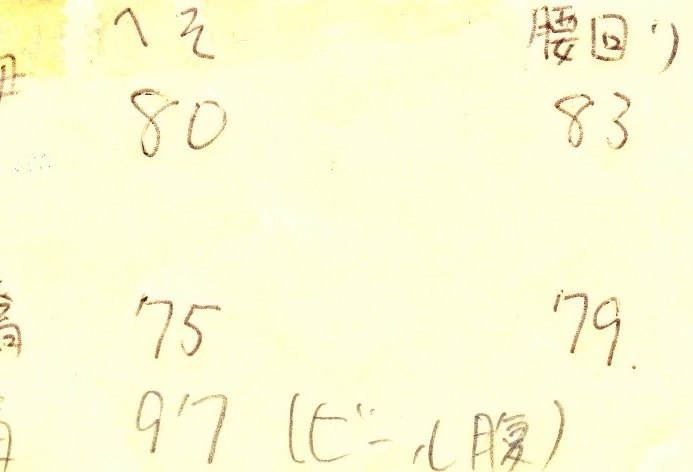 へそ 腰回り
80 83
75 79.
97 (ビール腹)